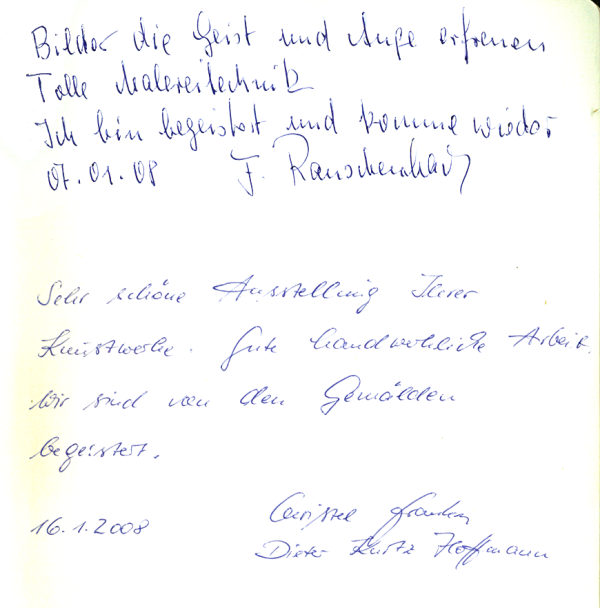 Bilder die Geist und Auge erfreuen
Tolle Malereitechnik
Ich bin begeistert und komme wieder
07.01.08 F.
Sehr schöne Ausstellung Ihrer
Kunstwerke. Gute handwerkliche Arbeit.
Wir sind von den Gemälden
begeistert.
16.1.2008 Christel
Dieter Hoffmann